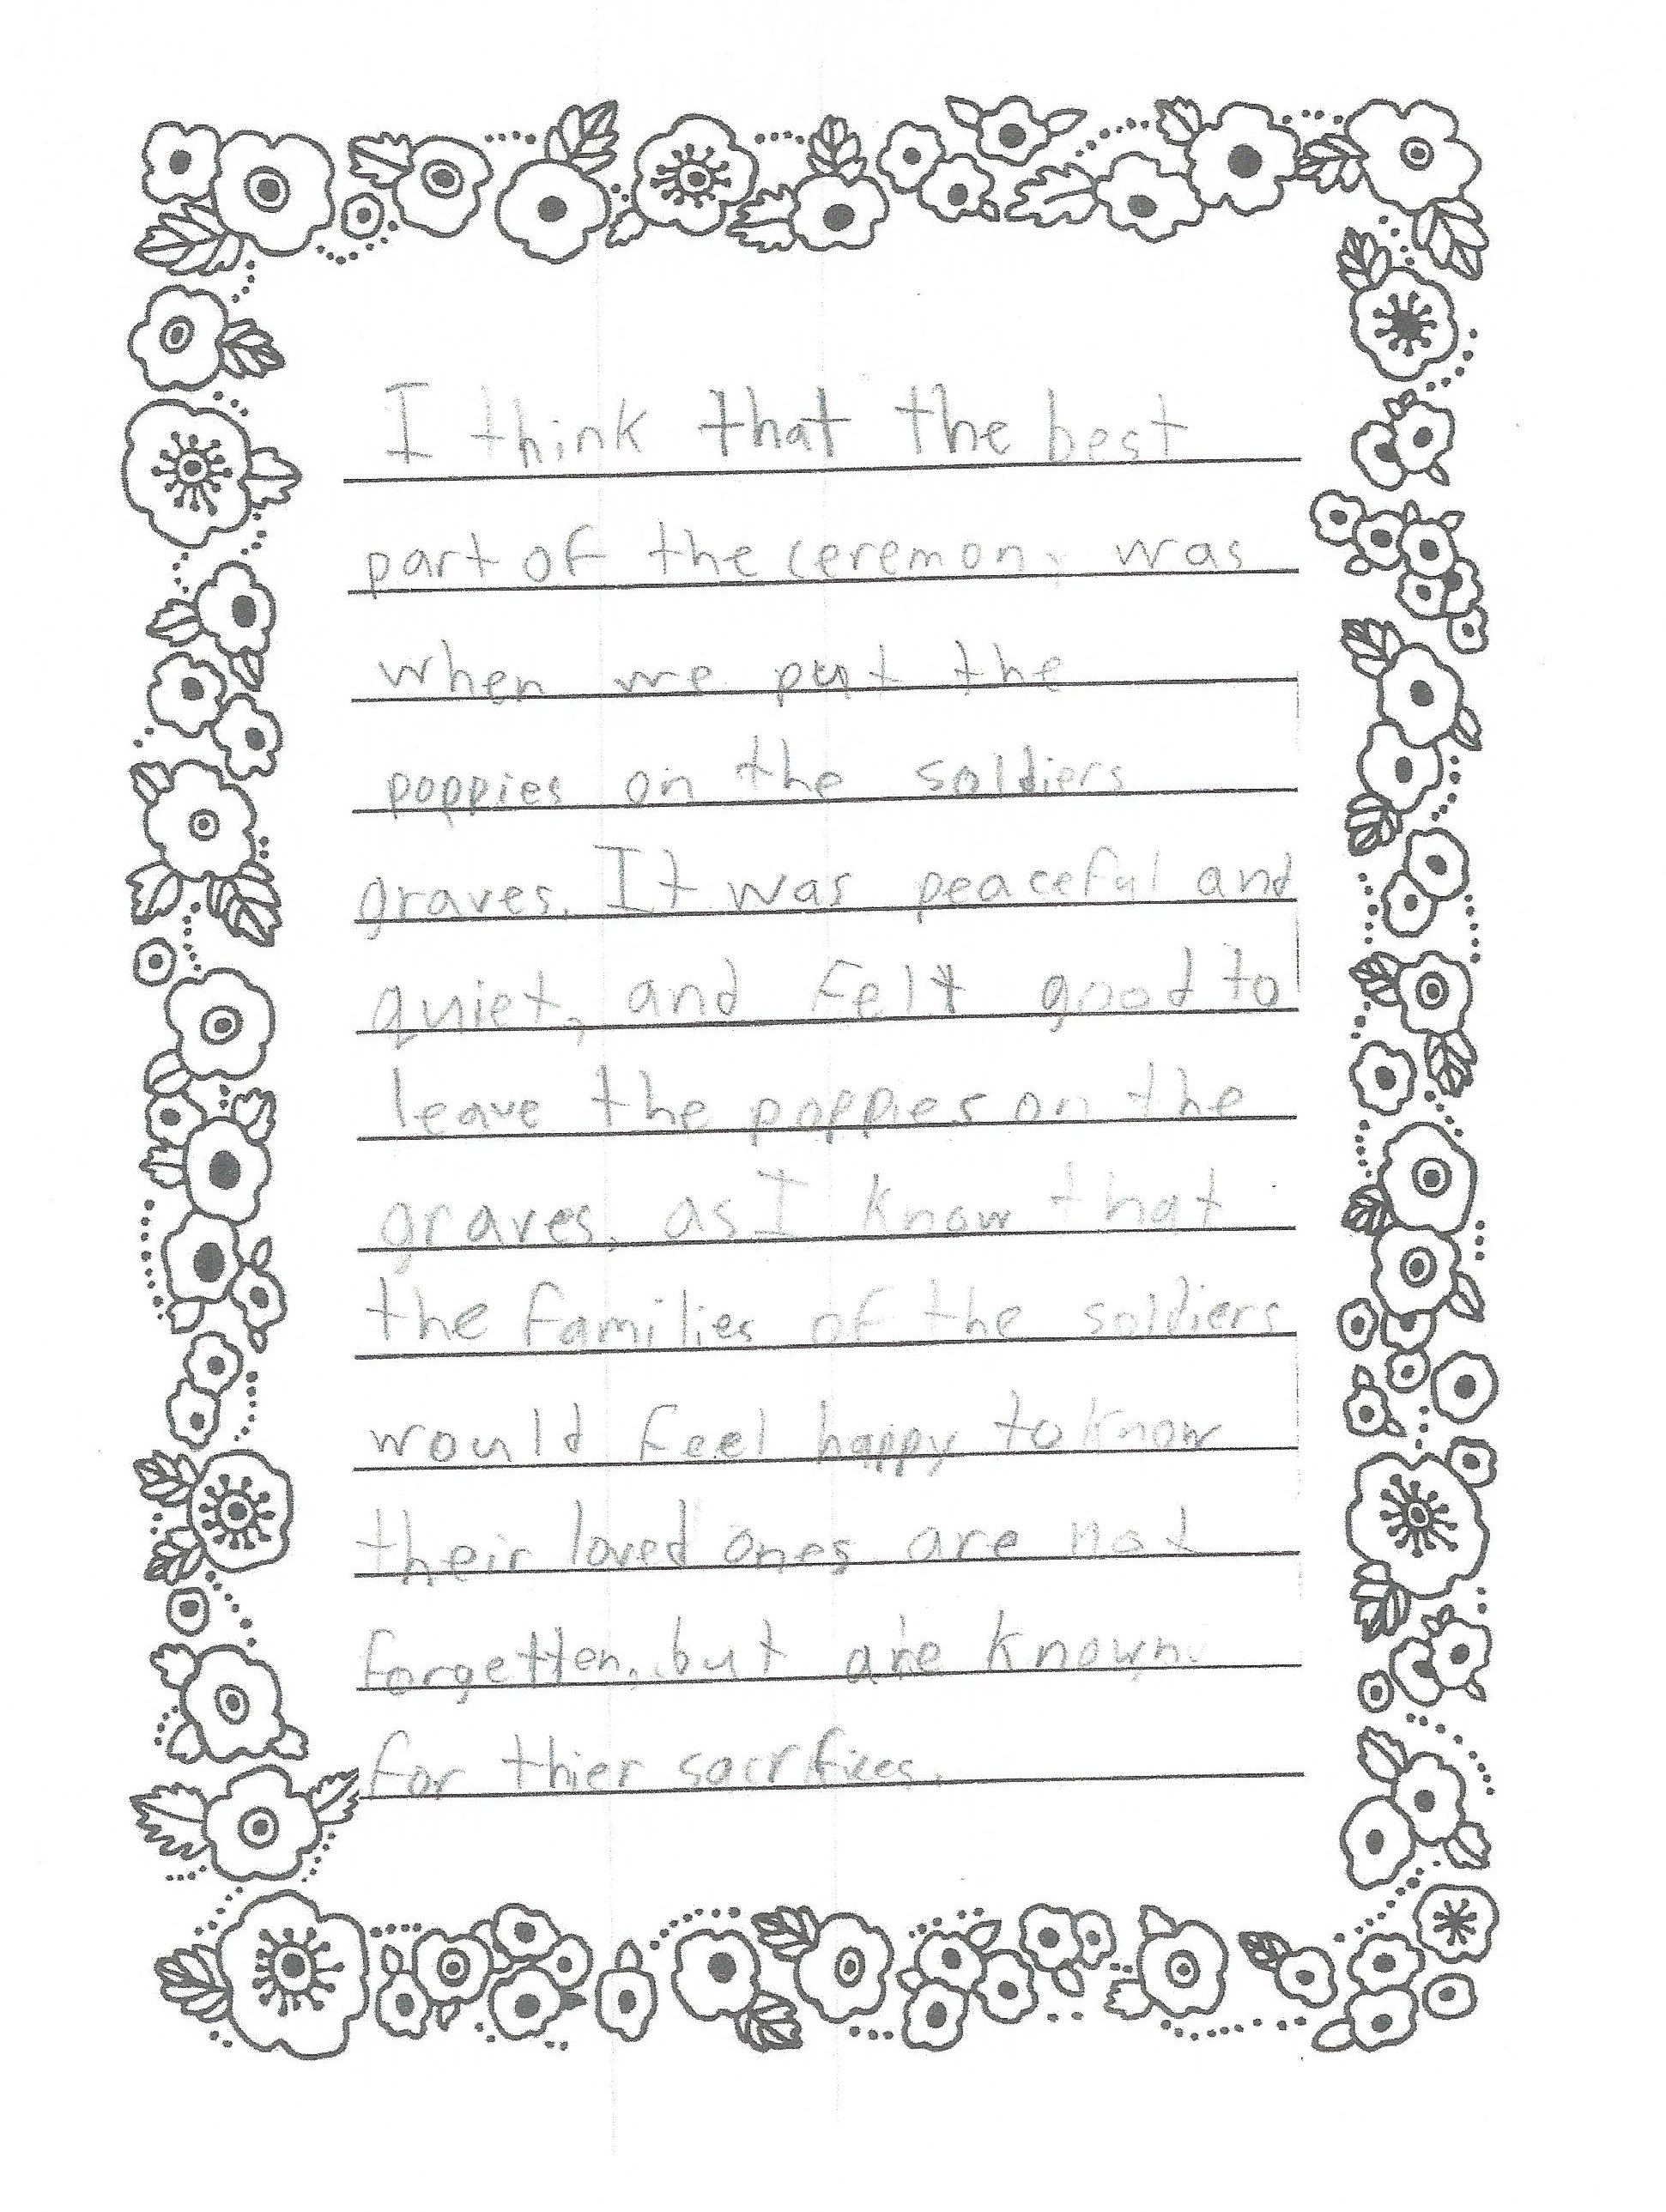 I think that the best
part of the ceremony was
when we put the
poppies on the soldiers
graves. It was peaceful and
quiet, and felt good to
leave the poppies on the
graves, as I know that
the families of the soldiers
would feel happy to know
their loved ones are not
forgetten, but are known
for thier sacrifices.